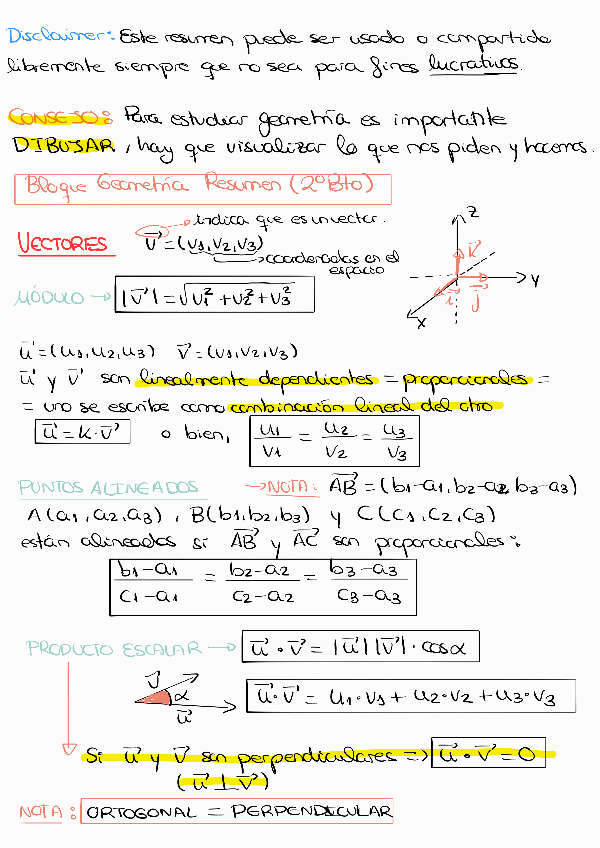 Disclaimer: Este resumen puede ser usado o compartido
libremente siempre que no sea para fines lucrativos.
CONSEJO: Para estudiar geometría es importante
DIBUJAR, hay que visualizar lo que nos piden y hacemos.
Bloque Geometría Resumen (2ºBto)
indica que es un vector.
VECTORES v⃗ = (v1, v2, v3)
coordenadas en el
espacio
z
k⃗
y
j⃗
i⃗
x
MÓDULO → |v⃗| = √(v1² + v2² + v3²)
u⃗ = (u1, u2, u3) v⃗ = (v1, v2, v3)
u⃗ y v⃗ son linealmente dependientes = proporcionales =
= uno se escribe como combinación lineal del otro
u⃗ = k · v⃗ o bien, u1/v1 = u2/v2 = u3/v3
PUNTOS ALINEADOS → NOTA: AB⃗ = (b1-a1, b2-a2, b3-a3)
A(a1, a2, a3), B(b1, b2, b3) y C(c1, c2, c3)
están alineados si AB⃗ y AC⃗ son proporcionales:
b1-a1/c1-a1 = b2-a2/c2-a2 = b3-a3/c3-a3
PRODUCTO ESCALAR → u⃗ · v⃗ = |u⃗| |v⃗| · cos α
v⃗
α
u⃗
u⃗ · v⃗ = u1 · v1 + u2 · v2 + u3 · v3
Si u⃗ y v⃗ son perpendiculares => u⃗ · v⃗ = 0
(u⃗ ⊥ v⃗)
NOTA: ORTOGONAL = PERPENDICULAR